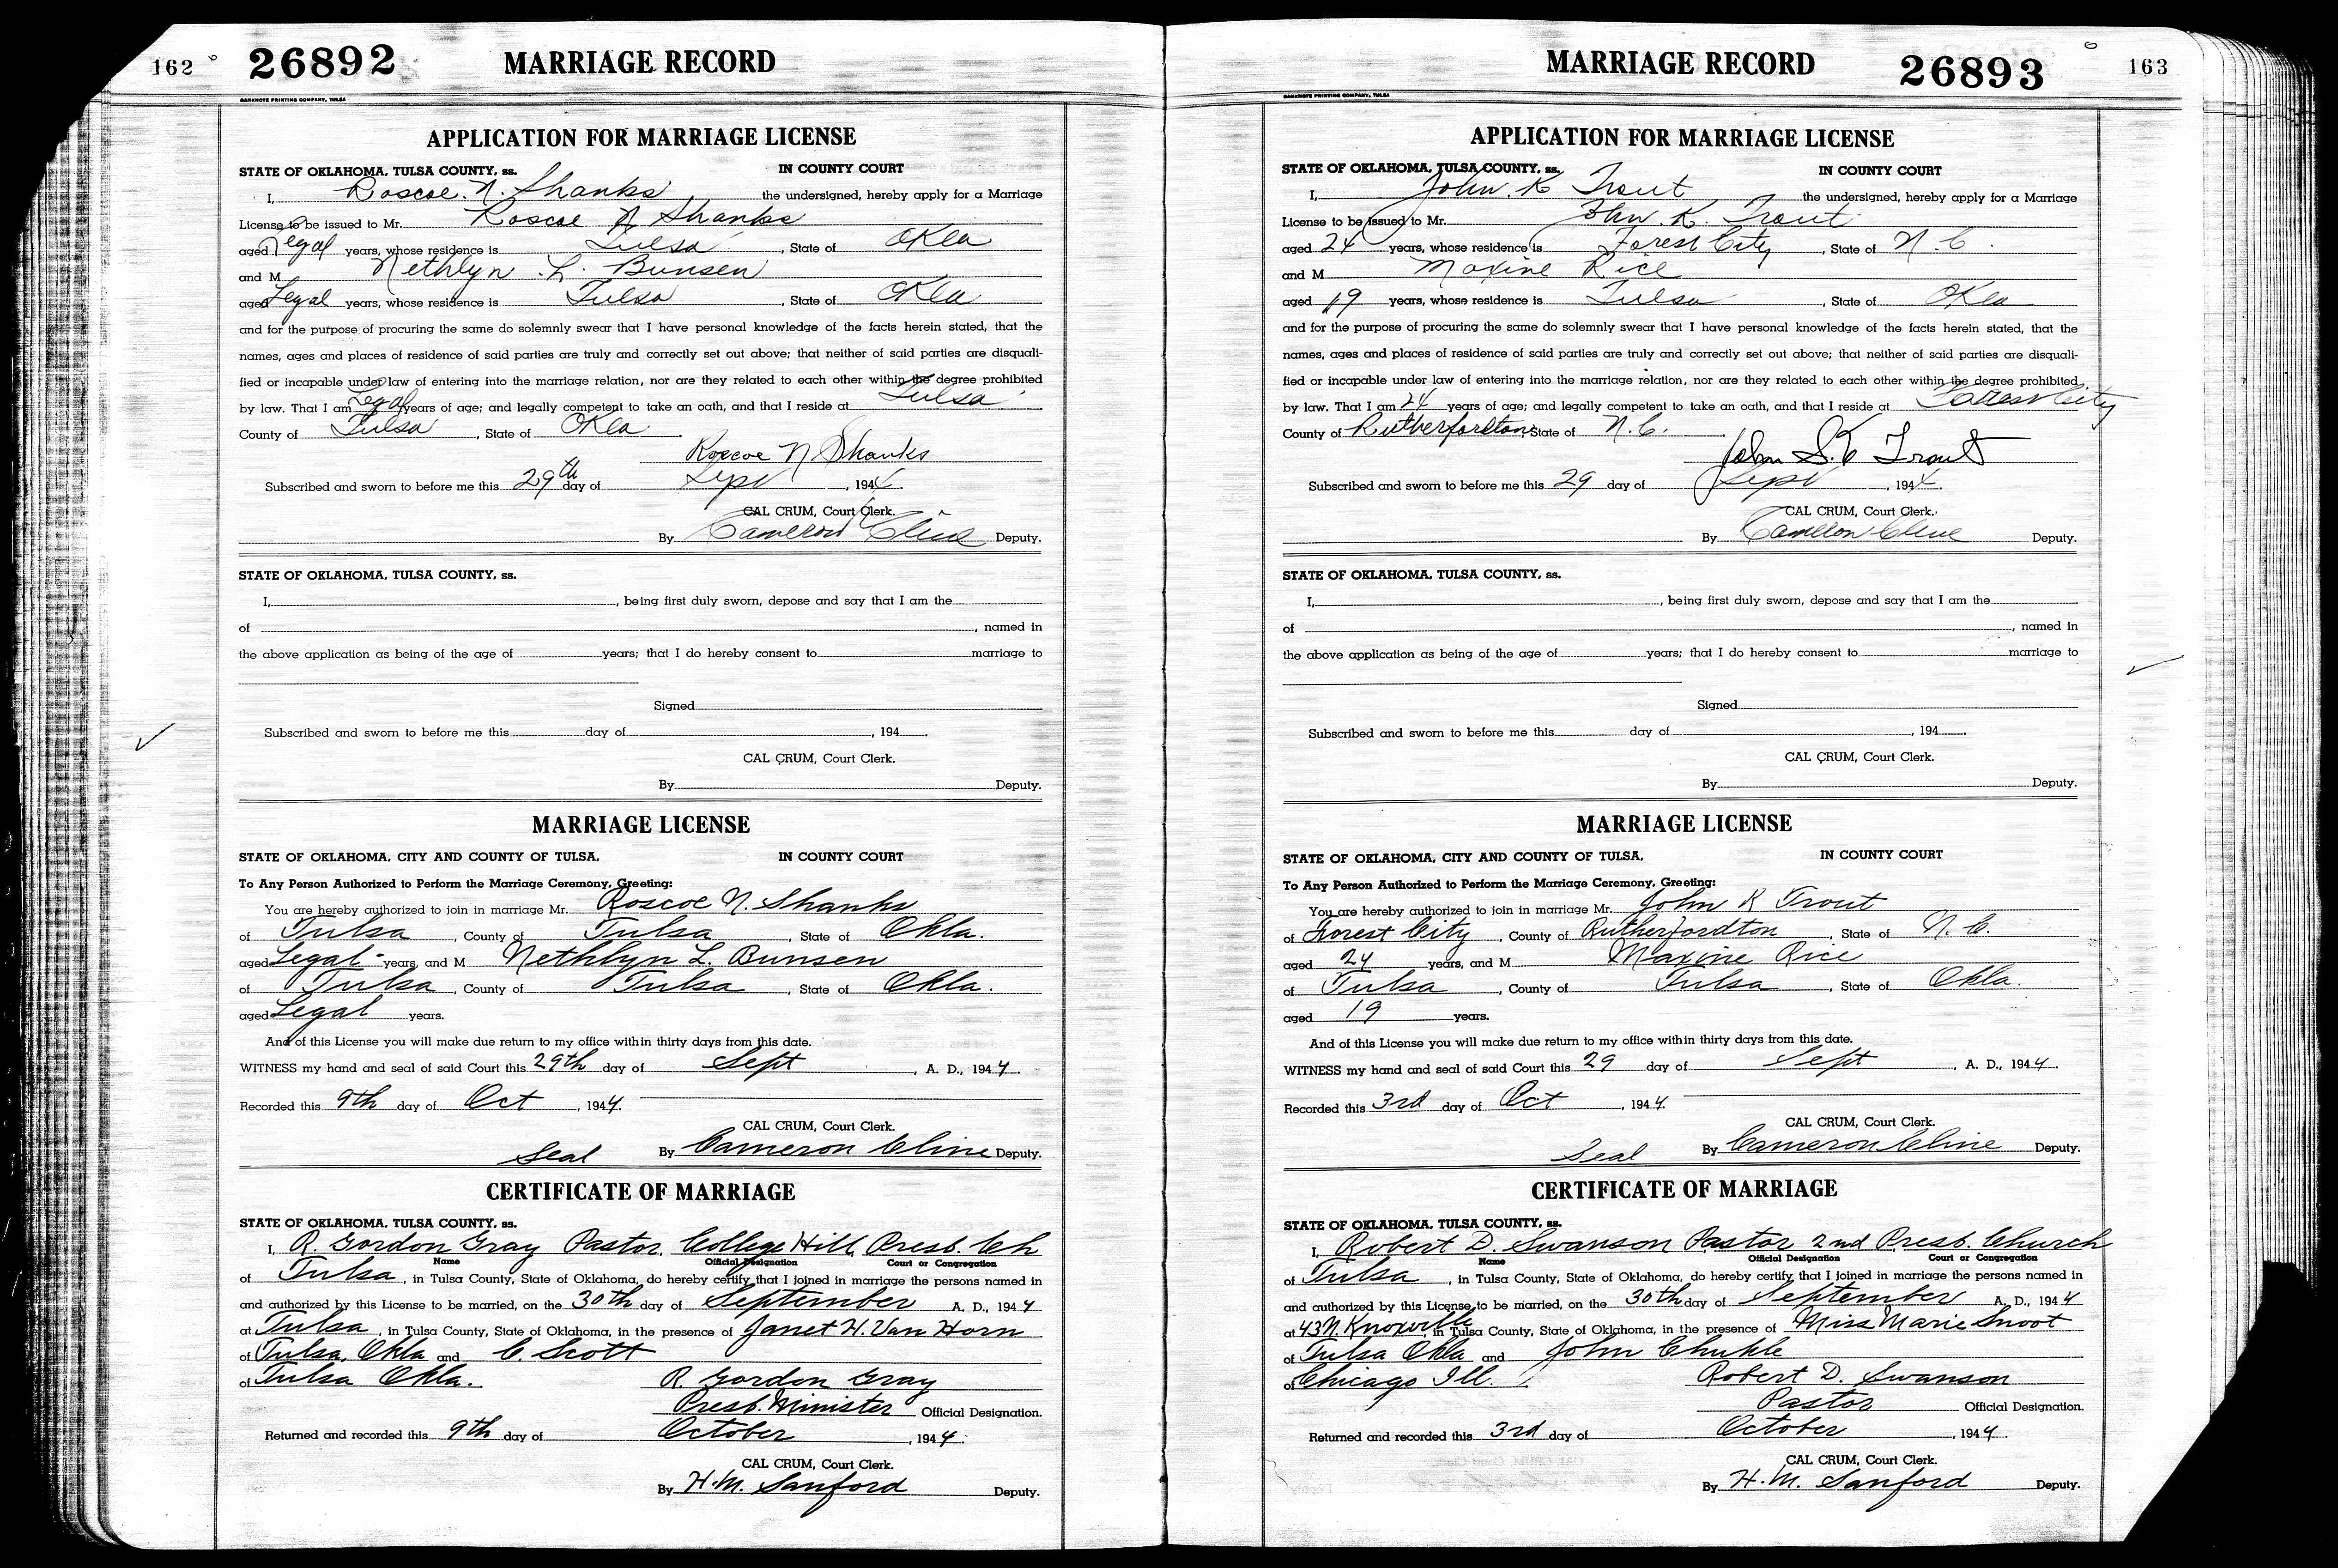 162 26892 MARRIAGE RECORD
BANKNOTE PRINTING COMPANY, TULSA
APPLICATION FOR MARRIAGE LICENSE
STATE OF OKLAHOMA, TULSA COUNTY, ss. IN COUNTY COURT
I, Roscoe N. Shanks the undersigned, hereby apply for a Marriage
License to be issued to Mr. Roscoe N Shanks
aged Legal years, whose residence is Tulsa, State of Okla
and M Nethlyn L. Bunsen
aged Legal years, whose residence is Tulsa, State of Okla
and for the purpose of procuring the same do solemnly swear that I have personal knowledge of the facts herein stated, that the
names, ages and places of residence of said parties are truly and correctly set out above; that neither of said parties are disquali-
fied or incapable under law of entering into the marriage relation, nor are they related to each other within the degree prohibited
by law. That I am Legal years of age; and legally competent to take an oath, and that I reside at Tulsa
County of Tulsa, State of Okla.
Roscoe N Shanks
Subscribed and sworn to before me this 29th day of Sept, 1944.
CAL CRUM, Court Clerk.
By Cameron Cline Deputy.
STATE OF OKLAHOMA, TULSA COUNTY, ss.
I, , being first duly sworn, depose and say that I am the
of , named in
the above application as being of the age of years; that I do hereby consent to marriage to
Signed
Subscribed and sworn to before me this day of , 194 .
CAL CRUM, Court Clerk.
By Deputy.
MARRIAGE LICENSE
STATE OF OKLAHOMA, CITY AND COUNTY OF TULSA, IN COUNTY COURT
To Any Person Authorized to Perform the Marriage Ceremony, Greeting:
You are hereby authorized to join in marriage Mr. Roscoe N. Shanks
of Tulsa, County of Tulsa, State of Okla.
aged Legal - years, and M Nethlyn L. Bunsen
of Tulsa, County of Tulsa, State of Okla.
aged Legal years.
And of this License you will make due return to my office within thirty days from this date.
WITNESS my hand and seal of said Court this 29th day of Sept, A. D., 1944.
Recorded this 9th day of Oct, 1944.
CAL CRUM, Court Clerk.
Seal By Cameron Cline Deputy.
CERTIFICATE OF MARRIAGE
STATE OF OKLAHOMA, TULSA COUNTY, ss.
I, R. Gordon Gray Pastor College Hill Presb. Ch
Name Official Designation Court or Congregation
of Tulsa, in Tulsa County, State of Oklahoma, do hereby certify that I joined in marriage the persons named in
and authorized by this License to be married, on the 30th day of September A. D., 1944
at Tulsa, in Tulsa County, State of Oklahoma, in the presence of Janet H. Van Horn
of Tulsa, Okla and C. Scott
of Tulsa Okla. R. Gordon Gray
Presb. Minister Official Designation.
Returned and recorded this 9th day of October, 1944.
CAL CRUM, Court Clerk.
By H. M. Sanford Deputy.
MARRIAGE RECORD 26893 163
BANKNOTE PRINTING COMPANY, TULSA
APPLICATION FOR MARRIAGE LICENSE
STATE OF OKLAHOMA, TULSA COUNTY, ss. IN COUNTY COURT
I, John K Trout the undersigned, hereby apply for a Marriage
License to be issued to Mr. John K. Trout
aged 24 years, whose residence is Forest City, State of N. C.
and M Maxine Rice
aged 19 years, whose residence is Tulsa, State of Okla
and for the purpose of procuring the same do solemnly swear that I have personal knowledge of the facts herein stated, that the
names, ages and places of residence of said parties are truly and correctly set out above; that neither of said parties are disquali-
fied or incapable under law of entering into the marriage relation, nor are they related to each other within the degree prohibited
by law. That I am 24 years of age; and legally competent to take an oath, and that I reside at Forrest City
County of Rutherfordton, State of N. C.
John S. K Trout
Subscribed and sworn to before me this 29 day of Sept, 1944.
CAL CRUM, Court Clerk.
By Cameron Cline Deputy.
STATE OF OKLAHOMA, TULSA COUNTY, ss.
I, , being first duly sworn, depose and say that I am the
of , named in
the above application as being of the age of years; that I do hereby consent to marriage to
Signed
Subscribed and sworn to before me this day of , 194 .
CAL CRUM, Court Clerk.
By Deputy.
MARRIAGE LICENSE
STATE OF OKLAHOMA, CITY AND COUNTY OF TULSA, IN COUNTY COURT
To Any Person Authorized to Perform the Marriage Ceremony, Greeting:
You are hereby authorized to join in marriage Mr. John K Trout
of Forest City, County of Rutherfordton, State of N. C.
aged 24 years, and M Maxine Rice
of Tulsa, County of Tulsa, State of Okla.
aged 19 years.
And of this License you will make due return to my office within thirty days from this date.
WITNESS my hand and seal of said Court this 29 day of Sept, A. D., 1944.
Recorded this 3rd day of Oct, 1944.
CAL CRUM, Court Clerk.
Seal By Cameron Cline Deputy.
CERTIFICATE OF MARRIAGE
STATE OF OKLAHOMA, TULSA COUNTY, ss.
I, Robert D. Swanson Pastor 2nd Presb. Church
Name Official Designation Court or Congregation
of Tulsa, in Tulsa County, State of Oklahoma, do hereby certify that I joined in marriage the persons named in
and authorized by this License to be married, on the 30th day of September A. D., 1944
at 43 N. Knoxville, in Tulsa County, State of Oklahoma, in the presence of Miss Marie Snoot
of Tulsa Okla and John Chukle
of Chicago Ill. Robert D. Swanson
Pastor Official Designation.
Returned and recorded this 3rd day of October, 1944.
CAL CRUM, Court Clerk.
By H. M. Sanford Deputy.